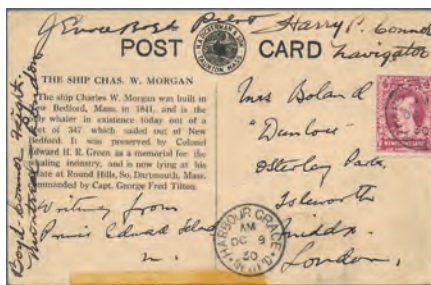 J Errol Boyd Pilot
Harry P. Connor
Navigator
POST CARD
N. BUCHERMAN & SON
TAUNTON, MASS.
THE SHIP CHAS. W. MORGAN
The ship Charles W. Morgan was built in
New Bedford, Mass. in 1841, and is the
only whaler in existence today out of a
fleet of 347 which sailed out of New
Bedford. It was preserved by Colonel
Edward H. R. Green as a memorial for the
whaling industry, and is now lying at his
estate at Round Hills, So. Dartmouth, Mass.
commanded by Capt. George Fred Tilton.
Writing from
Prince Edward Island
Boyd Connor Flight.
Montreal London
Mrs Boland
Osterley Park
Isleworth
Middx.
London,
HARBOUR GRACE
AM
OC 9
30
NF'L'D